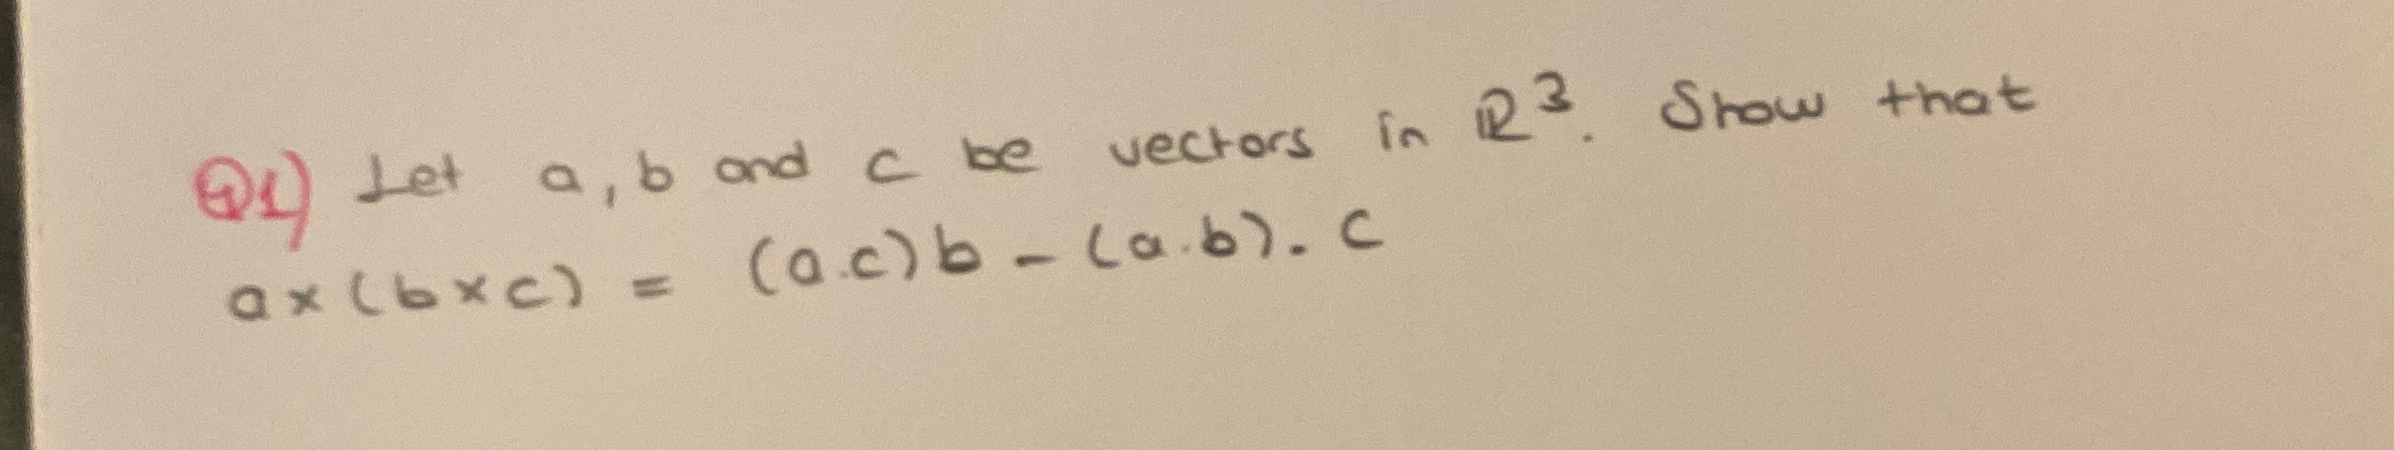 Q1) Let a, b and c be vectors in ℝ³. Show that
a × (b × c) = (a.c)b - (a.b). c